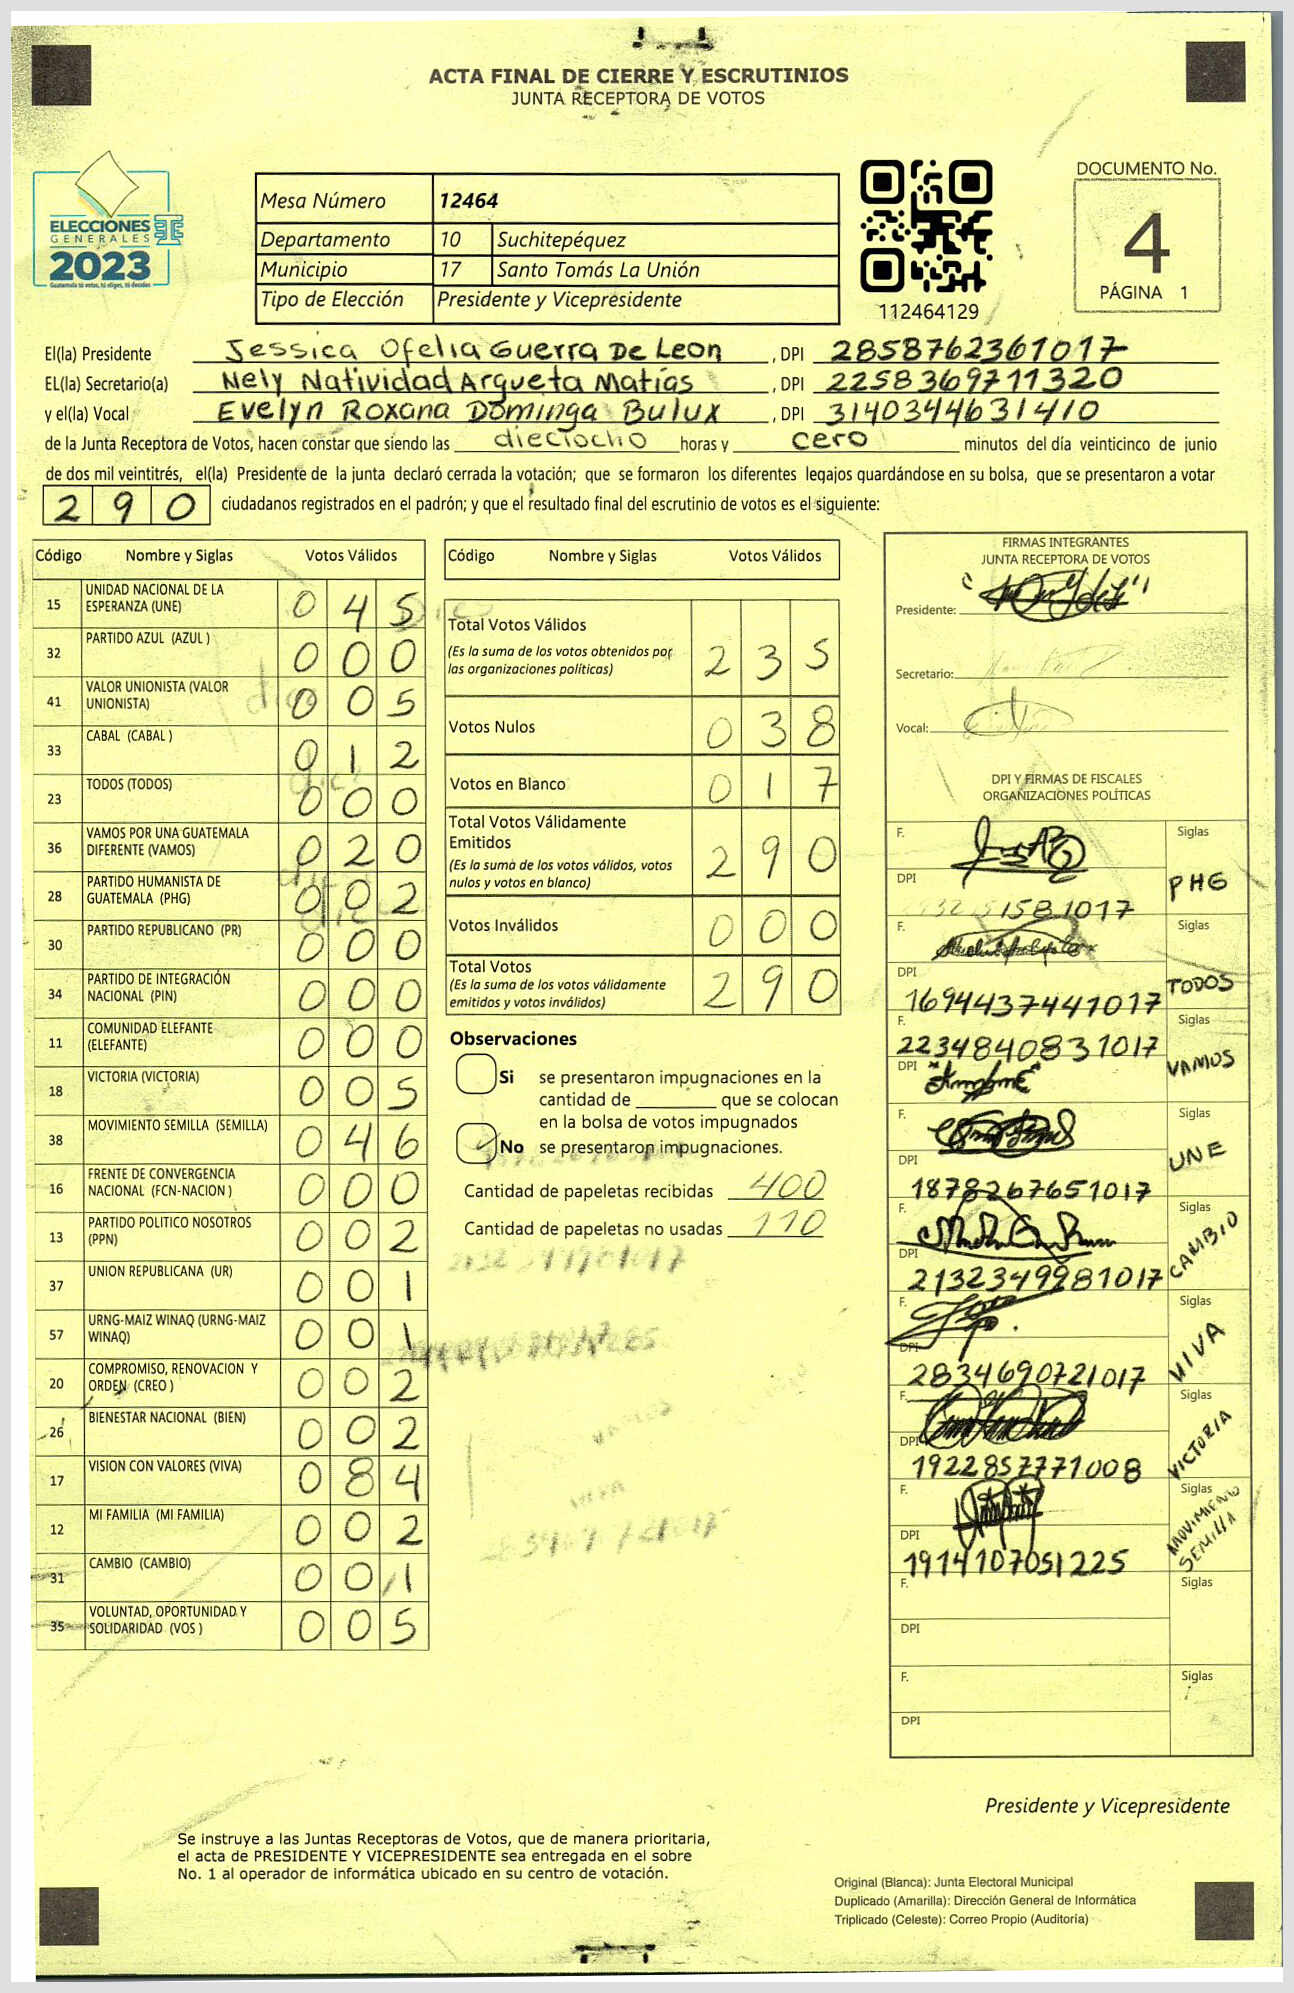 ACTA FINAL DE CIERRE Y ESCRUTINIOS
JUNTA RECEPTORA DE VOTOS
ELECCIONES
GENERALES
2023
Guatemala tú votas, tú eliges, tú decides
Mesa Número 12464
Departamento 10 Suchitepéquez
Municipio 17 Santo Tomás La Unión
Tipo de Elección Presidente y Vicepresidente
112464129
DOCUMENTO No.
4
PÁGINA 1
El(la) Presidente Jessica Ofelia Guerra De Leon , DPI 2858762361017
EL(la) Secretario(a) Nely Natividad Argueta Matías , DPI 2258369711320
y el(la) Vocal Evelyn Roxana Dominga Bulux , DPI 3140344631410
de la Junta Receptora de Votos, hacen constar que siendo las dieciocho horas y cero minutos del día veinticinco de junio
de dos mil veintitrés, el(la) Presidente de la junta declaró cerrada la votación; que se formaron los diferentes legajos guardándose en su bolsa, que se presentaron a votar
290 ciudadanos registrados en el padrón; y que el resultado final del escrutinio de votos es el siguiente:
Código Nombre y Siglas Votos Válidos
15 UNIDAD NACIONAL DE LA ESPERANZA (UNE) 045
32 PARTIDO AZUL (AZUL ) 000
41 VALOR UNIONISTA (VALOR UNIONISTA) 005
33 CABAL (CABAL ) 012
23 TODOS (TODOS) 000
36 VAMOS POR UNA GUATEMALA DIFERENTE (VAMOS) 020
28 PARTIDO HUMANISTA DE GUATEMALA (PHG) 002
30 PARTIDO REPUBLICANO (PR) 000
34 PARTIDO DE INTEGRACIÓN NACIONAL (PIN) 000
11 COMUNIDAD ELEFANTE (ELEFANTE) 000
18 VICTORIA (VICTORIA) 005
38 MOVIMIENTO SEMILLA (SEMILLA) 046
16 FRENTE DE CONVERGENCIA NACIONAL (FCN-NACION ) 000
13 PARTIDO POLITICO NOSOTROS (PPN) 002
37 UNION REPUBLICANA (UR) 001
57 URNG-MAIZ WINAQ (URNG-MAIZ WINAQ) 001
20 COMPROMISO, RENOVACION Y ORDEN (CREO ) 002
26 BIENESTAR NACIONAL (BIEN) 002
17 VISION CON VALORES (VIVA) 084
12 MI FAMILIA (MI FAMILIA) 002
31 CAMBIO (CAMBIO) 001
35 VOLUNTAD, OPORTUNIDAD Y SOLIDARIDAD (VOS ) 005
Código Nombre y Siglas Votos Válidos
Total Votos Válidos 235
(Es la suma de los votos obtenidos por
las organizaciones políticas)
Votos Nulos 038
Votos en Blanco 017
Total Votos Válidamente
Emitidos 290
(Es la suma de los votos válidos, votos
nulos y votos en blanco)
Votos Inválidos 000
Total Votos 290
(Es la suma de los votos válidamente
emitidos y votos inválidos)
Observaciones
Si se presentaron impugnaciones en la
cantidad de ________ que se colocan
en la bolsa de votos impugnados
No se presentaron impugnaciones.
Cantidad de papeletas recibidas 400
Cantidad de papeletas no usadas 110
FIRMAS INTEGRANTES
JUNTA RECEPTORA DE VOTOS
Presidente:
Secretario:
Vocal:
DPI Y FIRMAS DE FISCALES
ORGANIZACIONES POLÍTICAS
F. Siglas
DPI PHG
1581017
F. Siglas
DPI TODOS
1694437441017
F. Siglas
2234840831017
DPI VAMOS
F. Siglas
DPI UNE
1878267651017
F. Siglas
DPI CAMBIO
2132349981017
F. Siglas
DPI VIVA
2834690721017
F. Siglas
DPI VICTORIA
1922857771008
F. Siglas
DPI MOVIMIENTO SEMILLA
1914107051225
F. Siglas
DPI
F. Siglas
DPI
Presidente y Vicepresidente
Se instruye a las Juntas Receptoras de Votos, que de manera prioritaria,
el acta de PRESIDENTE Y VICEPRESIDENTE sea entregada en el sobre
No. 1 al operador de informática ubicado en su centro de votación.
Original (Blanca): Junta Electoral Municipal
Duplicado (Amarilla): Dirección General de Informática
Triplicado (Celeste): Correo Propio (Auditoría)